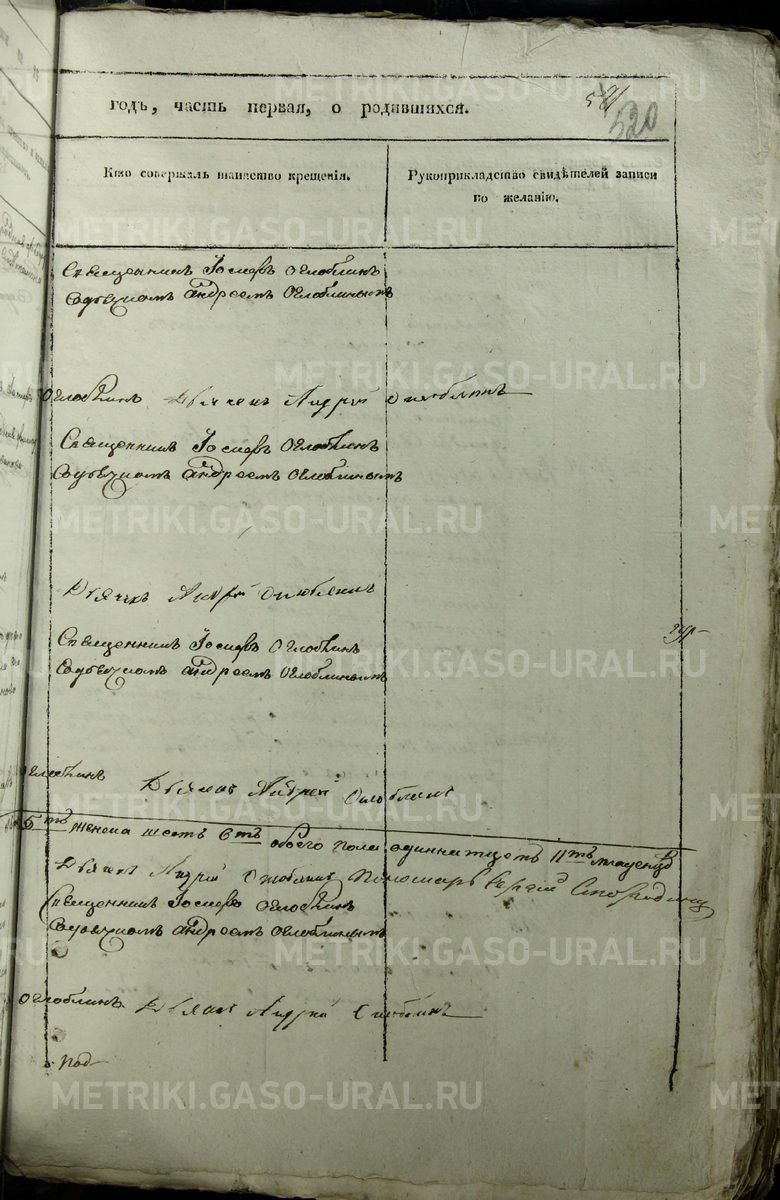 годъ, часть первая, о родившихся.
520
Кто совершалъ таинство крещенія.
Рукоприкладство свидѣтелей записи по желанію.
Священникъ Іосифъ Оглоблинъ
Андреемъ Оглоблинымъ
Оглоблинъ Дьячекъ Андрей Оглоблинъ
Священникъ Іосифъ Оглоблинъ
Андреемъ Оглоблинымъ
Дьячекъ Андрей Оглоблинъ
Священникъ Іосифъ Оглоблинъ
Андреемъ Оглоблинымъ
Оглоблинъ Дьячекъ Андрей Оглоблинъ
5ть женска шесть 6ть обоего пола одиннатцеть 11ть младенцовъ
Дьячекъ Андрей Оглоблинъ Пономарь Сергій
Священникъ Іосифъ Оглоблинъ
Андреемъ Оглоблинымъ
Оглоблинъ Дьячекъ Андрей Оглоблинъ
Под
METRIKI.GASO-URAL.RU